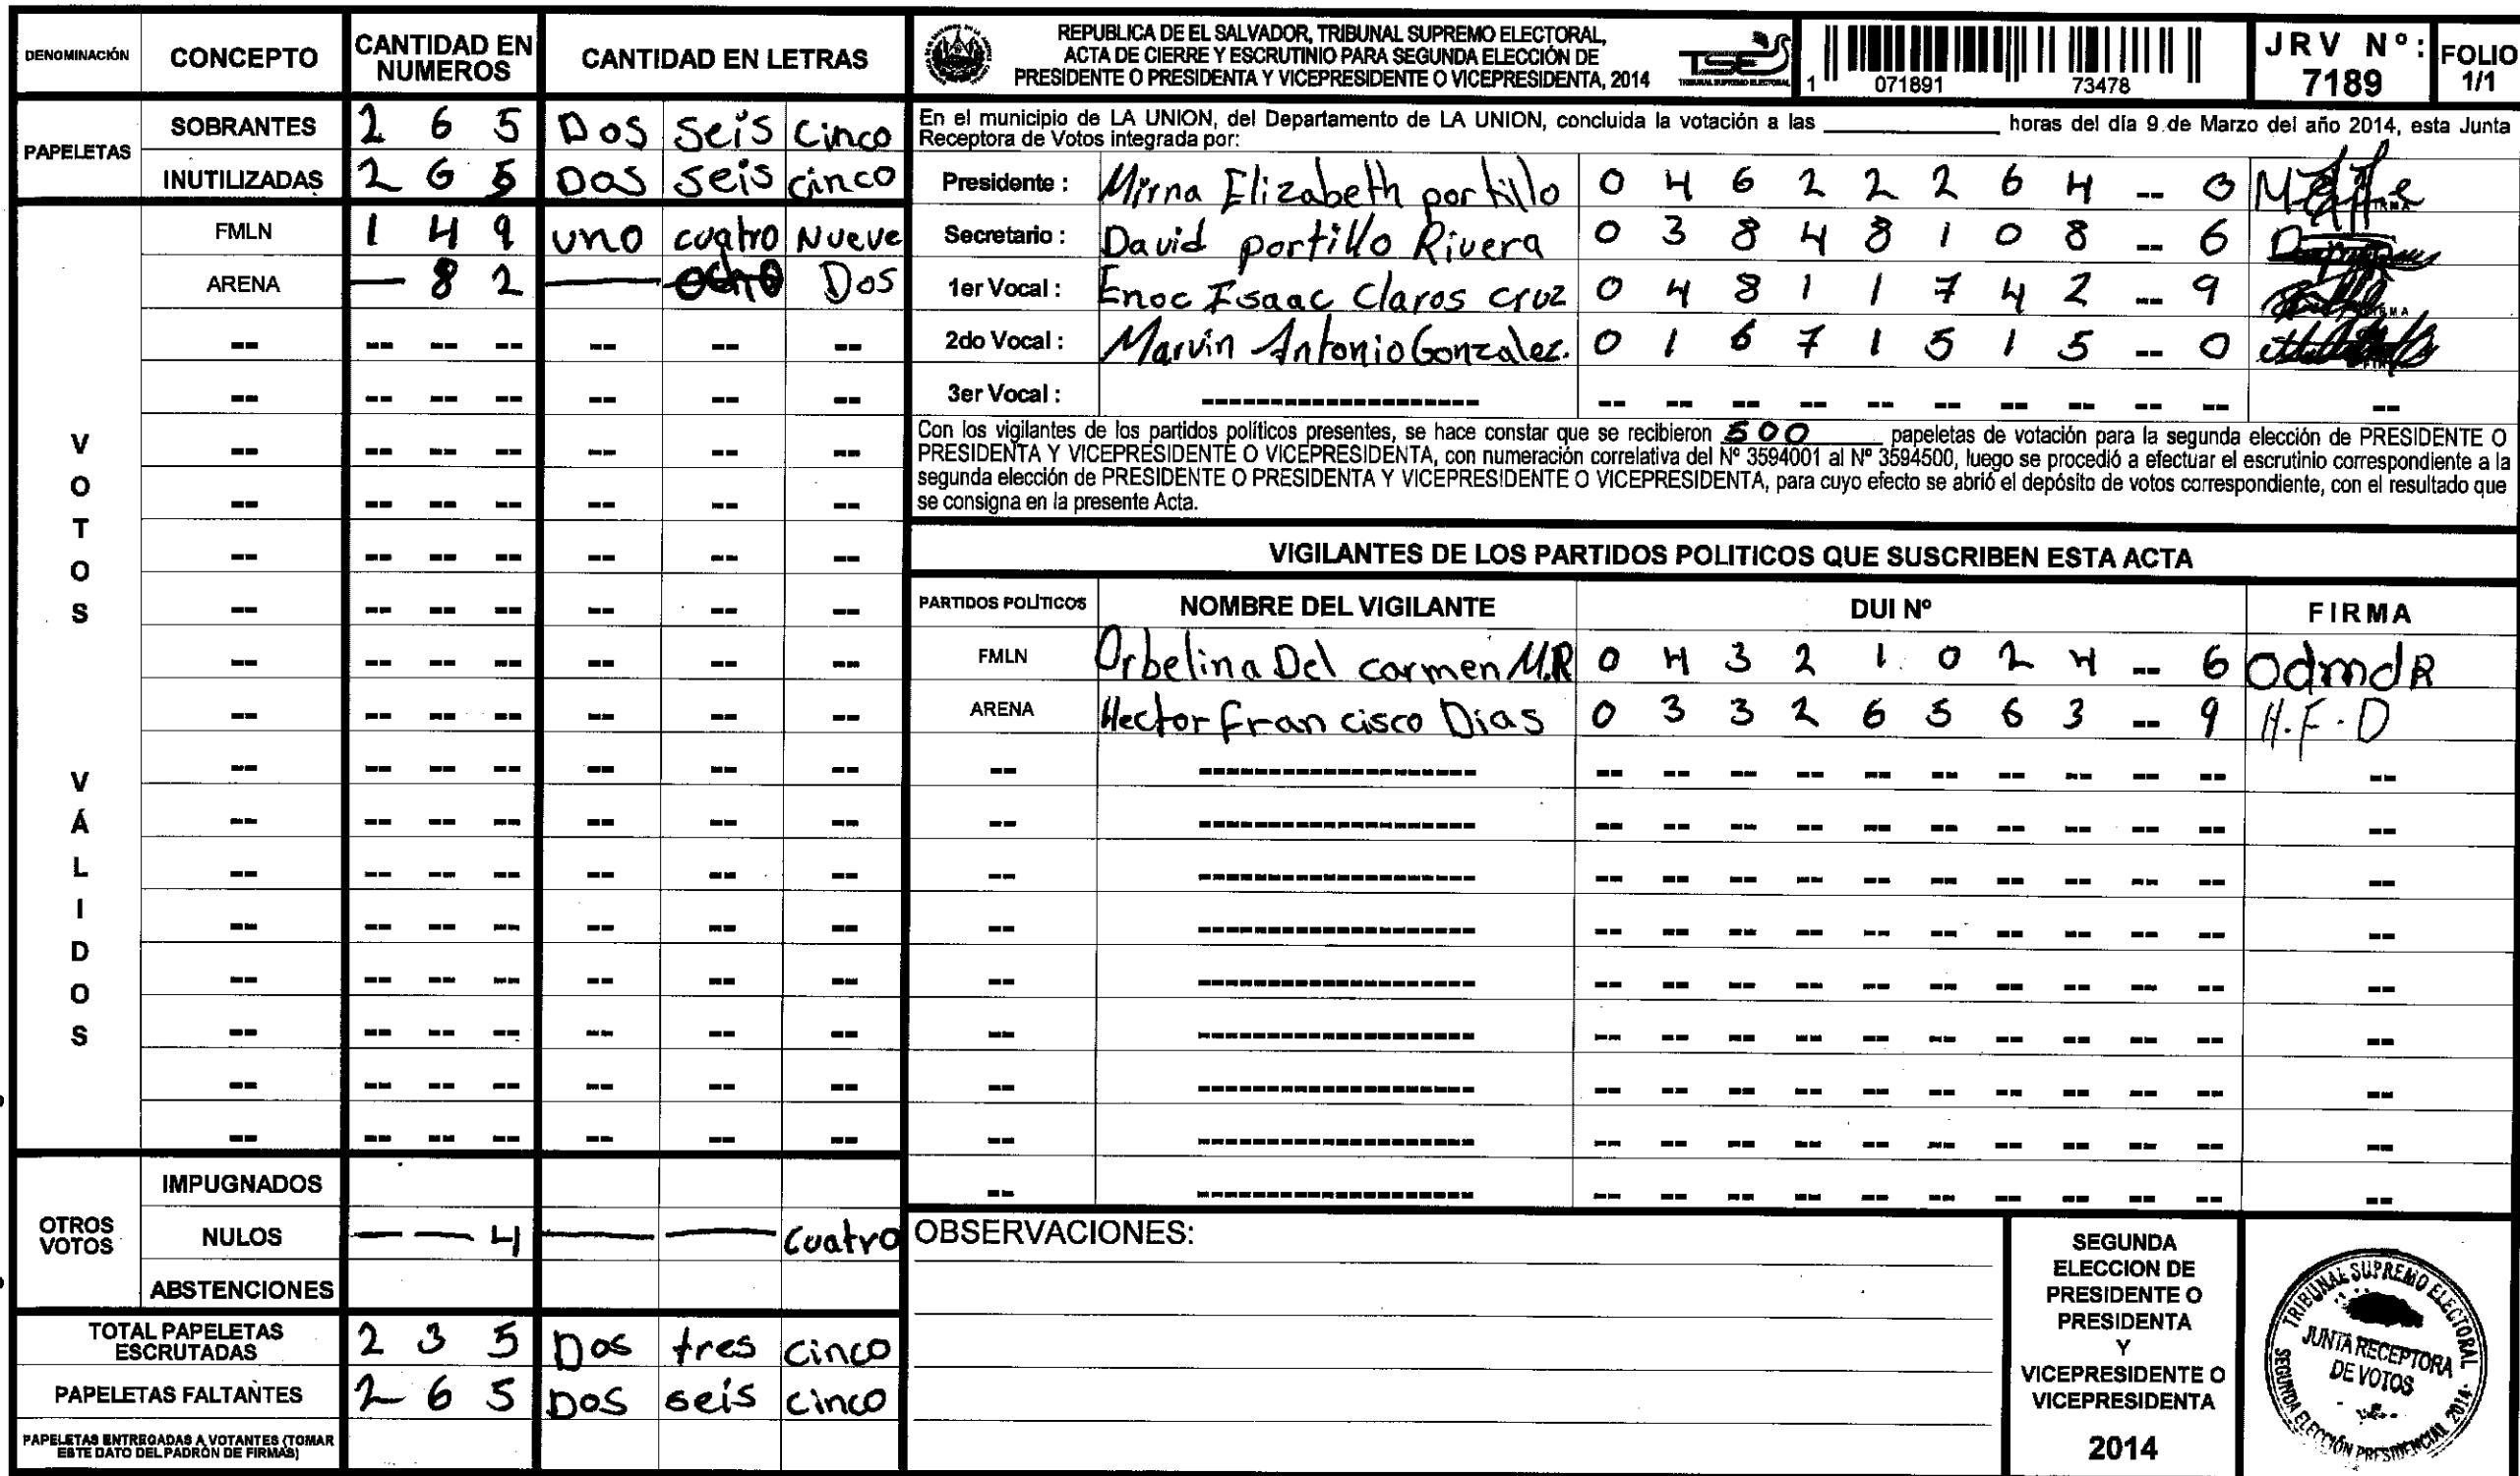 DENOMINACIÓN CONCEPTO CANTIDAD EN NUMEROS CANTIDAD EN LETRAS
PAPELETAS
SOBRANTES 2 6 5 Dos Seis Cinco
INUTILIZADAS 2 6 5 Dos Seis cinco
VOTOS VÁLIDOS
FMLN 1 4 9 uno cuatro Nueve
ARENA — 8 2 — ocho Dos
OTROS VOTOS
IMPUGNADOS
NULOS — — 4 — — Cuatro
ABSTENCIONES
TOTAL PAPELETAS ESCRUTADAS 2 3 5 Dos tres cinco
PAPELETAS FALTANTES 2 6 5 Dos seis cinco
PAPELETAS ENTREGADAS A VOTANTES (TOMAR ESTE DATO DEL PADRÓN DE FIRMAS)
REPUBLICA DE EL SALVADOR, TRIBUNAL SUPREMO ELECTORAL,
ACTA DE CIERRE Y ESCRUTINIO PARA SEGUNDA ELECCIÓN DE
PRESIDENTE O PRESIDENTA Y VICEPRESIDENTE O VICEPRESIDENTA, 2014
TSE
TRIBUNAL SUPREMO ELECTORAL
1 071891 73478
JRV Nº: 7189
FOLIO 1/1
En el municipio de LA UNION, del Departamento de LA UNION, concluida la votación a las ____ horas del día 9 de Marzo del año 2014, esta Junta
Receptora de Votos integrada por:
Presidente : Mirna Elizabeth portillo 0 4 6 2 2 2 6 4 -- 0
Secretario : David portillo Rivera 0 3 8 4 8 1 0 8 -- 6
1er Vocal : Enoc Isaac Claros cruz 0 4 8 1 1 7 4 2 -- 9
2do Vocal : Marvin Antonio Gonzalez. 0 1 6 7 1 5 1 5 -- 0
3er Vocal : --------------------
Con los vigilantes de los partidos políticos presentes, se hace constar que se recibieron 500 papeletas de votación para la segunda elección de PRESIDENTE O
PRESIDENTA Y VICEPRESIDENTE O VICEPRESIDENTA, con numeración correlativa del Nº 3594001 al Nº 3594500, luego se procedió a efectuar el escrutinio correspondiente a la
segunda elección de PRESIDENTE O PRESIDENTA Y VICEPRESIDENTE O VICEPRESIDENTA, para cuyo efecto se abrió el depósito de votos correspondiente, con el resultado que
se consigna en la presente Acta.
VIGILANTES DE LOS PARTIDOS POLITICOS QUE SUSCRIBEN ESTA ACTA
PARTIDOS POLÍTICOS NOMBRE DEL VIGILANTE DUI Nº FIRMA
FMLN Orbelina Del carmen M.R 0 4 3 2 1 0 2 4 -- 6 OdmdR
ARENA Hector Francisco Dias 0 3 3 2 6 5 6 3 -- 9 H.F.D
OBSERVACIONES:
SEGUNDA
ELECCION DE
PRESIDENTE O
PRESIDENTA
Y
VICEPRESIDENTE O
VICEPRESIDENTA
2014
TRIBUNAL SUPREMO ELECTORAL
JUNTA RECEPTORA
DE VOTOS
SEGUNDA ELECCIÓN PRESIDENCIAL 2014